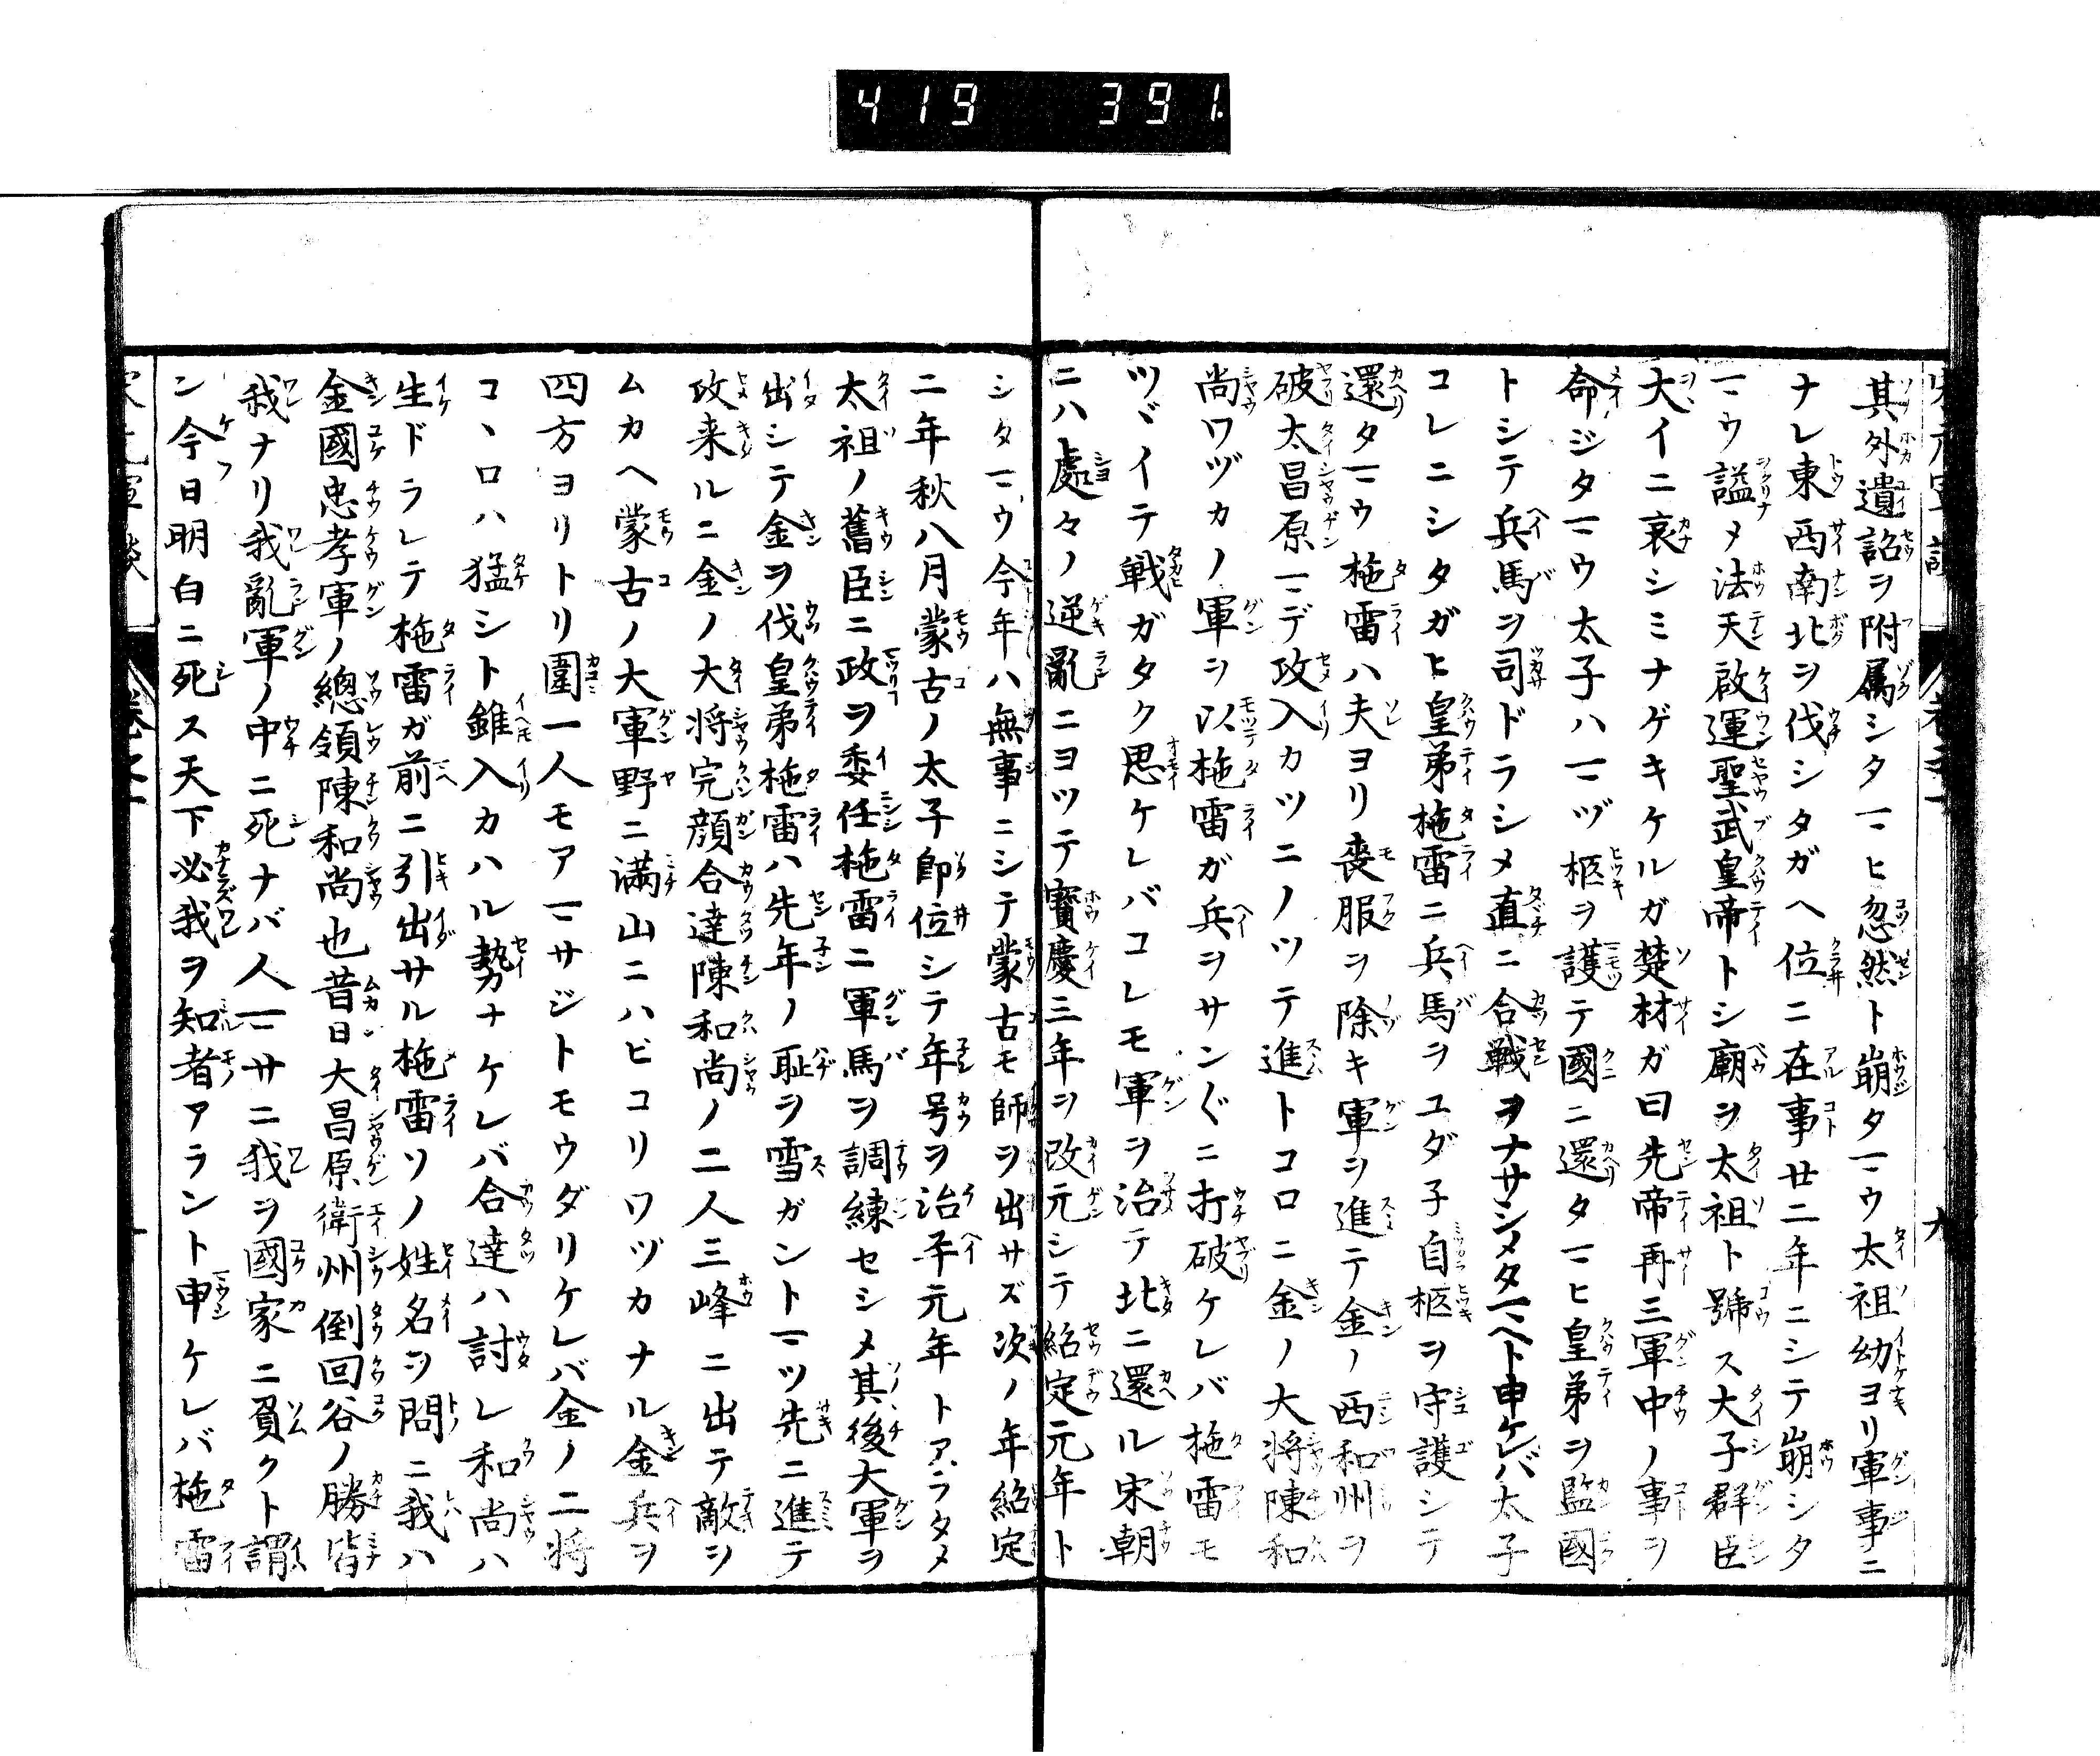 419 391.
其外遺詔ヲ附属シタマヒ忽然ト崩タマウ太祖幼ヨリ軍事ニ
ナレ東西南北ヲ伐シタガヘ位ニ在事廿二年ニシテ崩シタ
マウ謚メ法天啟運聖武皇帝トシ廟ヲ太祖ト號ス大子群臣
大イニ哀シミナゲキケルガ楚材ガ曰先帝再三軍中ノ事ヲ
命ジタマウ太子ハマヅ柩ヲ護テ國ニ還タマヒ皇弟ヲ監國
トシテ兵馬ヲ司ドラシメ直ニ合戦ヲナサシメタマヘト申ケレバ太子
コレニシタガヒ皇弟拖雷ニ兵馬ヲユダ子自柩ヲ守護シテ
還タマウ拖雷ハ夫ヨリ喪服ヲ除キ軍ヲ進テ金ノ西和州ヲ
破太昌原マデ攻入カツニノツテ進トコロニ金ノ大将陳和
尚ワヅカノ軍ヲ以拖雷ガ兵ヲサンぐニ打破ケレバ拖雷モ
ツヾイテ戦ガタク思ケレバコレモ軍ヲ治テ北ニ還ル宋朝
ニハ處々ノ逆亂ニヨツテ寳慶三年ヲ改元シテ紹定元年ト
シタマウ今年ハ無事ニシテ蒙古モ師ヲ出サズ次ノ年紹定
二年秋八月蒙古ノ太子即位シテ年号ヲ治平元年トアラタメ
太祖ノ舊臣ニ政ヲ委任拖雷ニ軍馬ヲ調練セシメ其後大軍ヲ
出シテ金ヲ伐皇弟拖雷ハ先年ノ耻ヲ雪ガントマツ先ニ進テ
攻来ルニ金ノ大将完顔合達陳和尚ノ二人三峰ニ出テ敵ヲ
ムカヘ蒙古ノ大軍野ニ満山ニハビコリワヅカナル金兵ヲ
四方ヨリトリ圍一人モアマサジトモウダリケレバ金ノ二将
コヽロハ猛シト雖入カハル勢ナケレバ合達ハ討レ和尚ハ
生ドラレテ拖雷ガ前ニ引出サル拖雷ソノ姓名ヲ問ニ我ハ
金國忠孝軍ノ總領陳和尚也昔日大昌原衛州倒回谷ノ勝皆
我ナリ我亂軍ノ中ニ死ナバ人マサニ我ヲ國家ニ負クト謂
ン今日明白ニ死ス天下必我ヲ知者アラント申ケレバ拖雷